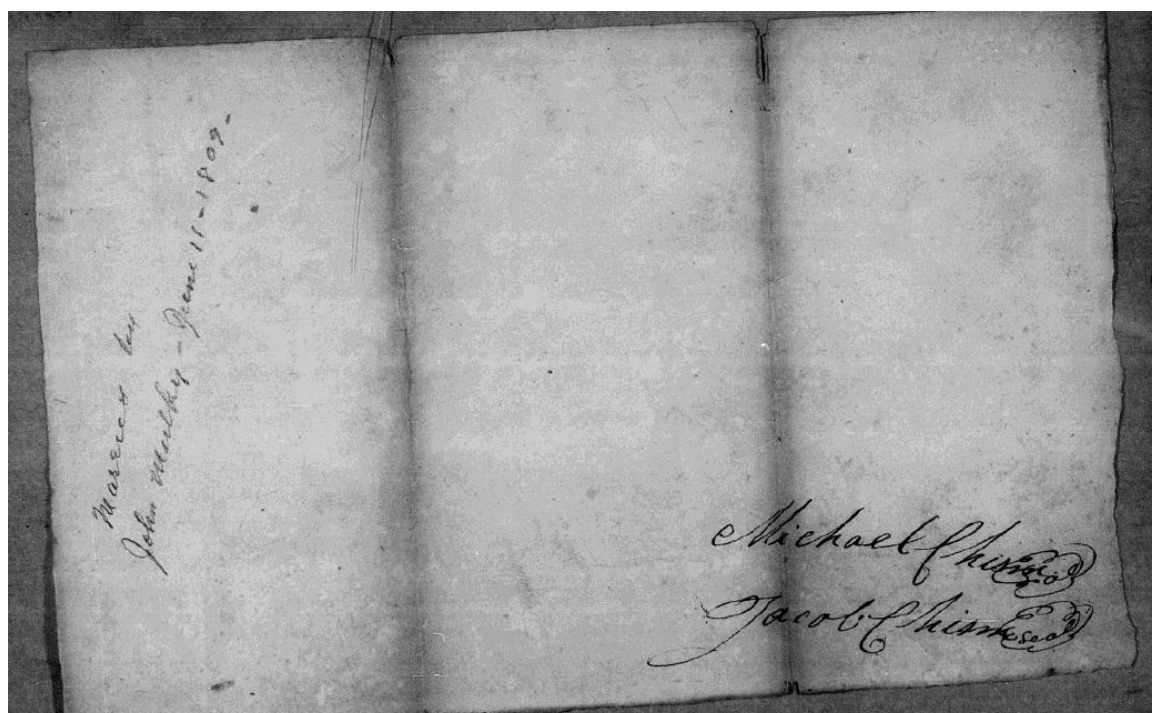 Married by
John Mulkey - June 11 - 1809 -
Michael Chism Seal
Jacob Chism Seal